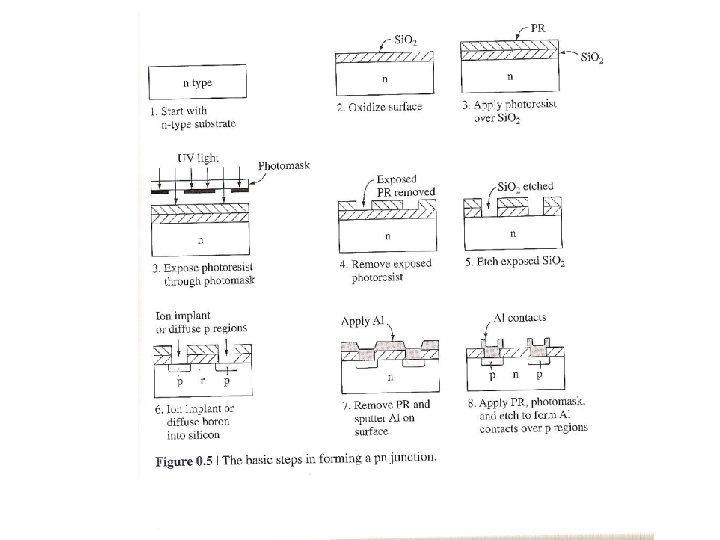 n type
1. Start with
n-type substrate
SiO2
n
2. Oxidize surface
PR
SiO2
n
3. Apply photoresist
over SiO2
UV light
Photomask
n
3. Expose photoresist
through photomask
Exposed
PR removed
n
4. Remove exposed
photoresist
SiO2 etched
n
5. Etch exposed SiO2
Ion implant
or diffuse p regions
p
p
6. Ion implant or
diffuse boron
into silicon
Apply Al
n
7. Remove PR and
sputter Al on
surface
Al contacts
p n p
8. Apply PR, photomask,
and etch to form Al
contacts over p regions
Figure 0.5 | The basic steps in forming a pn junction.